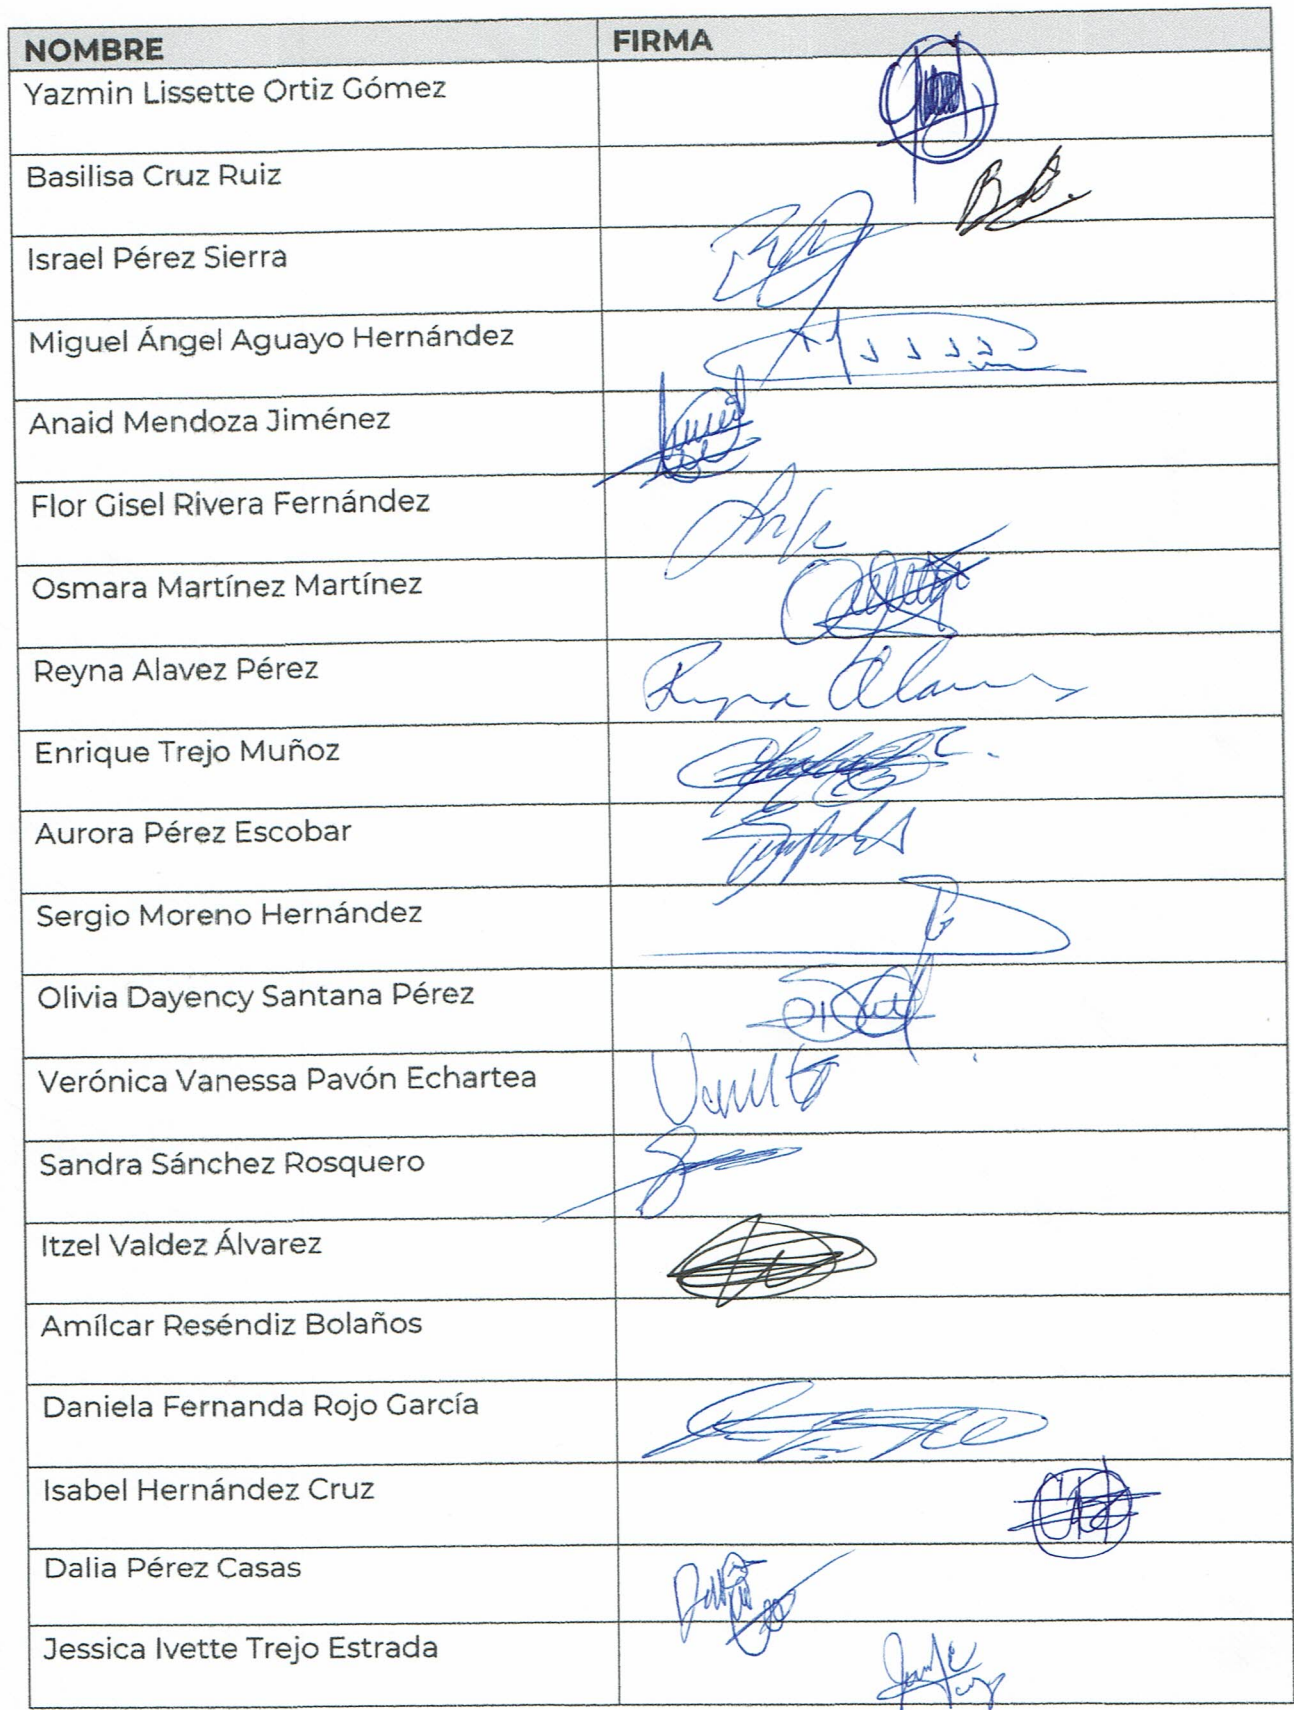 NOMBRE FIRMA
Yazmin Lissette Ortiz Gómez
Basilisa Cruz Ruiz
Israel Pérez Sierra
Miguel Ángel Aguayo Hernández
Anaid Mendoza Jiménez
Flor Gisel Rivera Fernández
Osmara Martínez Martínez
Reyna Alavez Pérez
Enrique Trejo Muñoz
Aurora Pérez Escobar
Sergio Moreno Hernández
Olivia Dayency Santana Pérez
Verónica Vanessa Pavón Echartea
Sandra Sánchez Rosquero
Itzel Valdez Álvarez
Amílcar Reséndiz Bolaños
Daniela Fernanda Rojo García
Isabel Hernández Cruz
Dalia Pérez Casas
Jessica Ivette Trejo Estrada